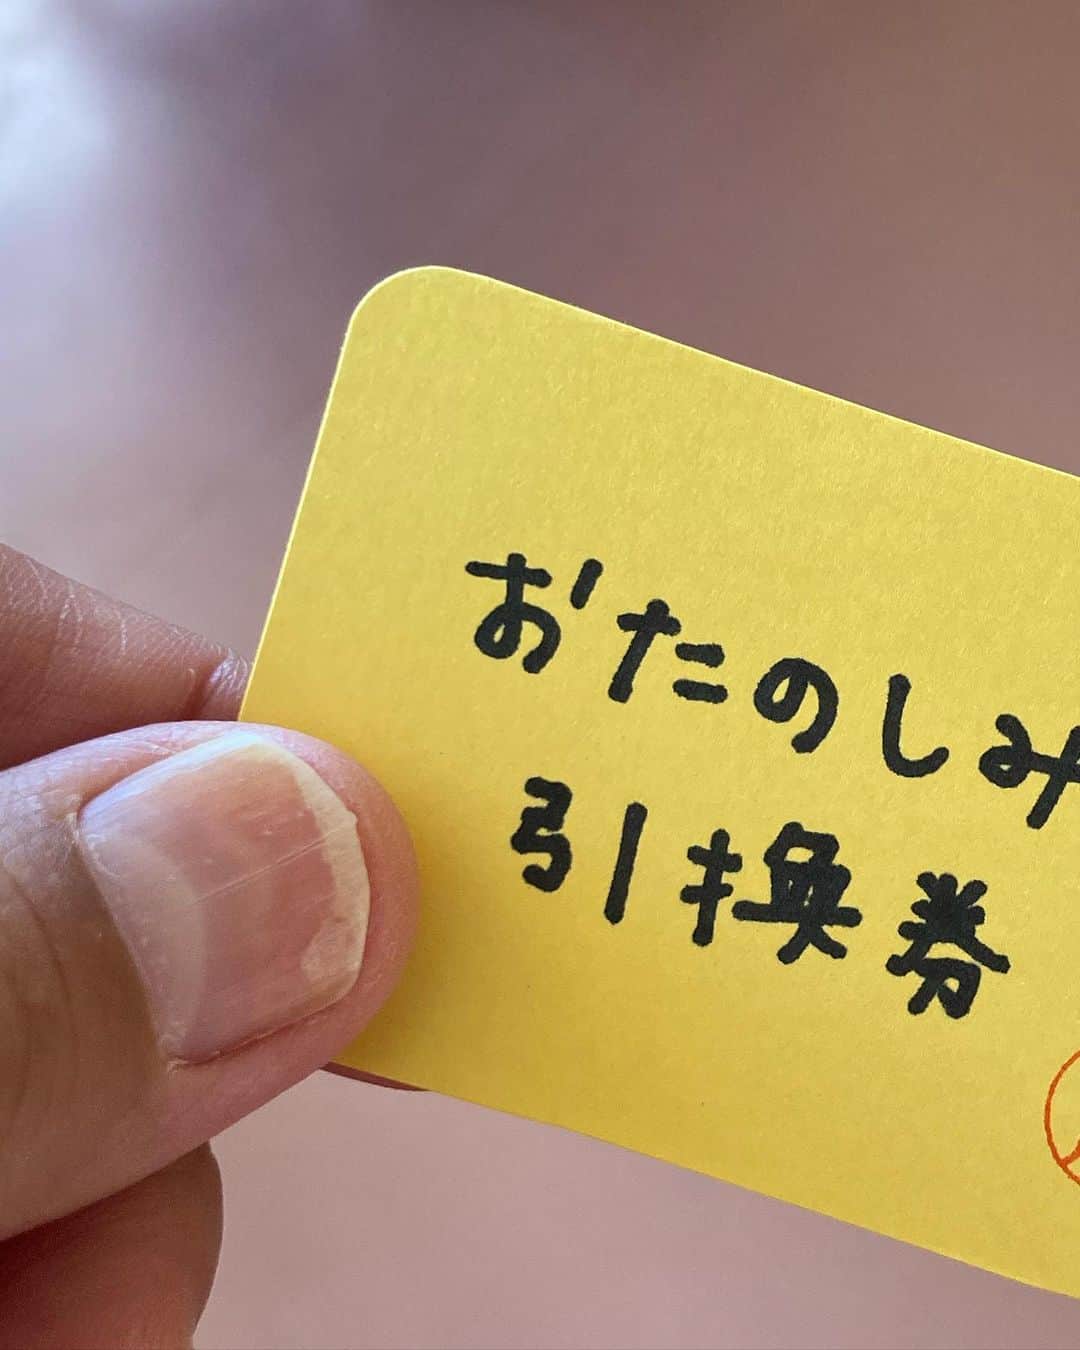 おたのしみ
引換券